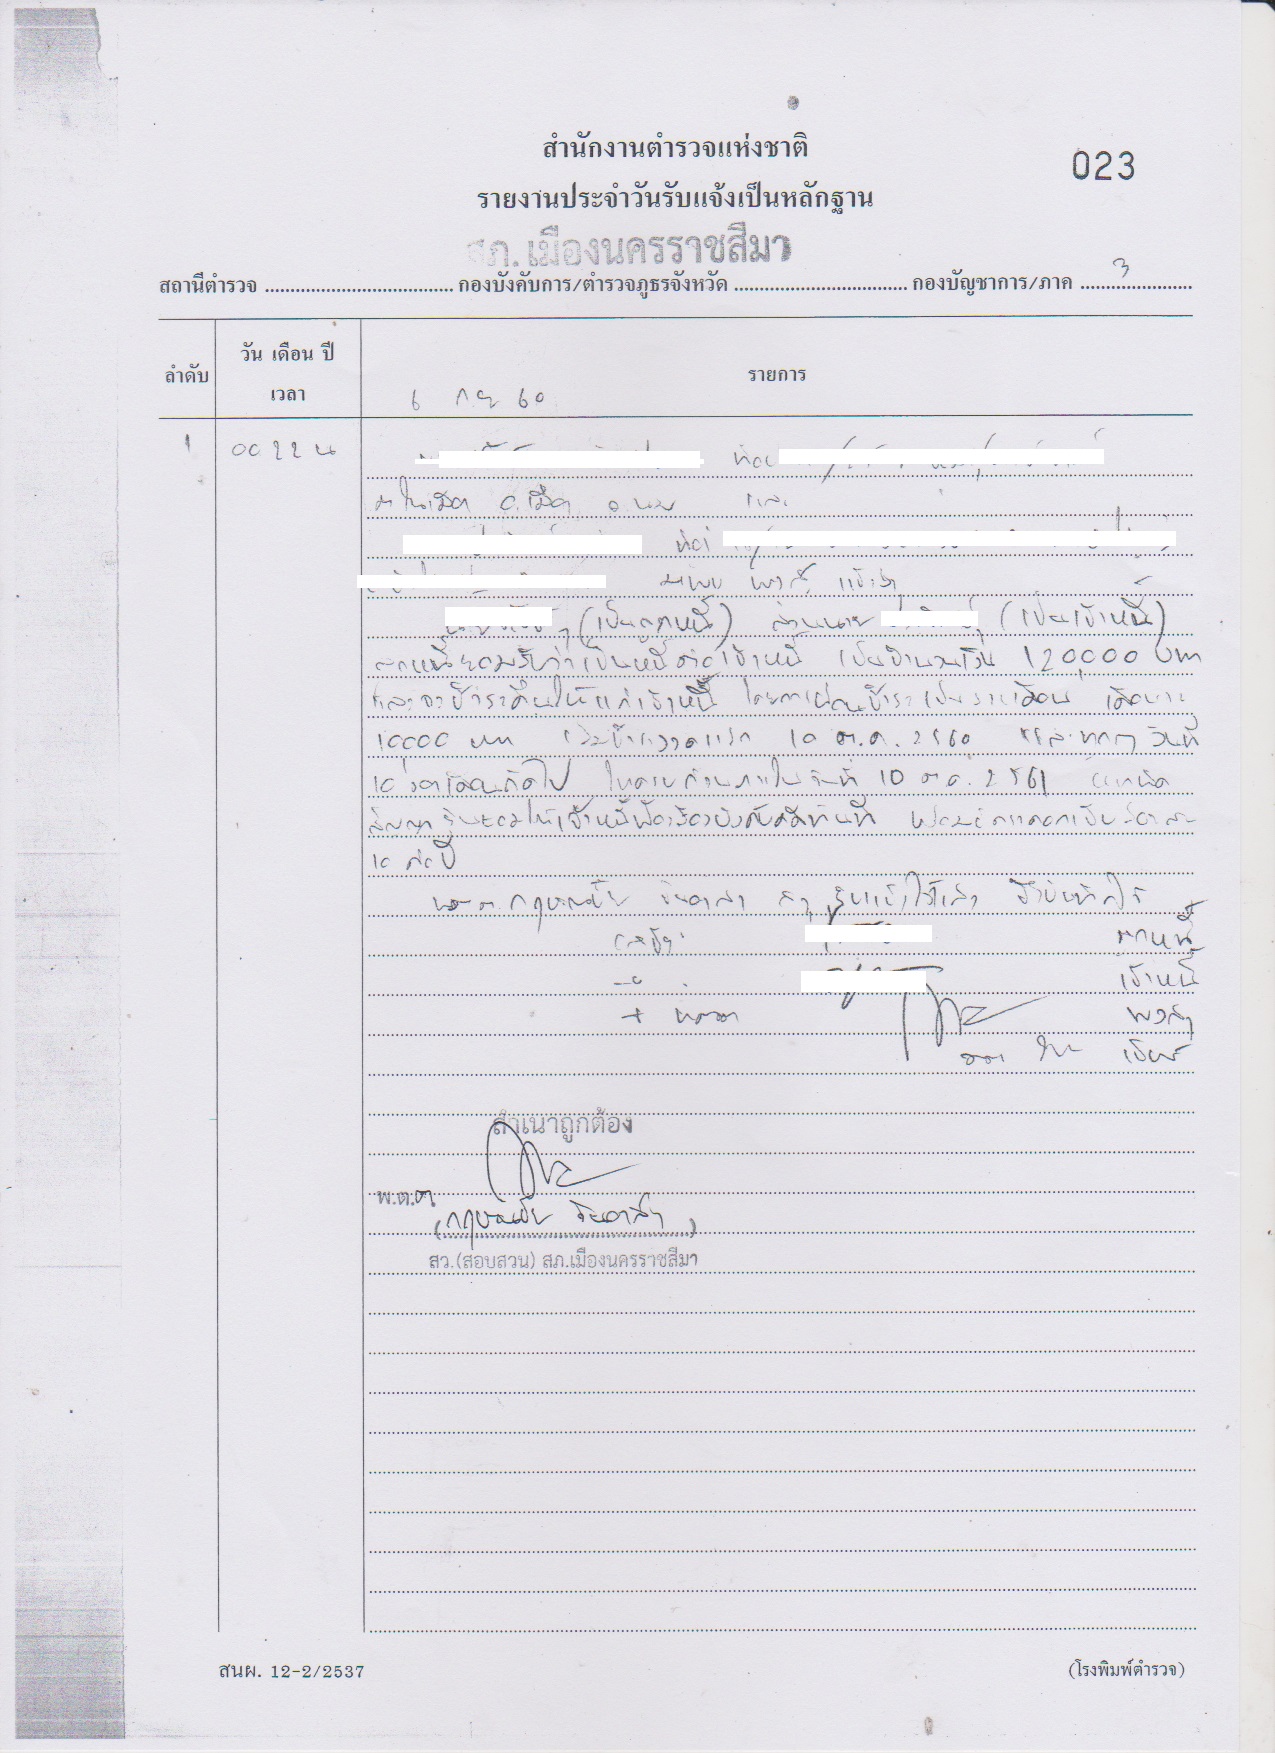 023
สำนักงานตำรวจแห่งชาติ
รายงานประจำวันรับแจ้งเป็นหลักฐาน
สภ.เมืองนครราชสีมา
สถานีตำรวจ .................................. กองบังคับการ/ตำรวจภูธรจังหวัด ................................ กองบัญชาการ/ภาค 3
ลำดับ วัน เดือน ปี เวลา รายการ
6 กย 60
1 0022 น
ที่อยู่
ต.ในเมือง อ.เมือง จ.นม และ
ที่อยู่
มาพบ พงส. แจ้งว่า
(เป็นลูกหนี้) ส่วนนาย (เป็นเจ้าหนี้)
ลูกหนี้ยอมรับว่าเป็นหนี้ต่อเจ้าหนี้ เป็นจำนวนเงิน 120,000 บาท
และจะชำระคืนให้แก่เจ้าหนี้ โดยการผ่อนชำระเป็นรายเดือน เดือนละ
10000 บาท เริ่มชำระงวดแรก 10 ต.ค. 2560 และทุกๆ วันที่
10 ของเดือนถัดไป ให้ครบถ้วนภายในวันที่ 10 ต.ค. 2561 หากผิด
สัญญา ยินยอมให้เจ้าหนี้ฟ้องร้องบังคับคดีทันที พร้อมดอกเบี้ยร้อยละ
10 ต่อปี
พ.ต.ต. กฤษณชัย รับแจ้งไว้แล้ว จึงบันทึกไว้
ลงชื่อ ลูกหนี้
เจ้าหนี้
พงส.
เขียน
สำเนาถูกต้อง
พ.ต.ต.
(กฤษณชัย )
สว.(สอบสวน) สภ.เมืองนครราชสีมา
สนผ. 12-2/2537 (โรงพิมพ์ตำรวจ)